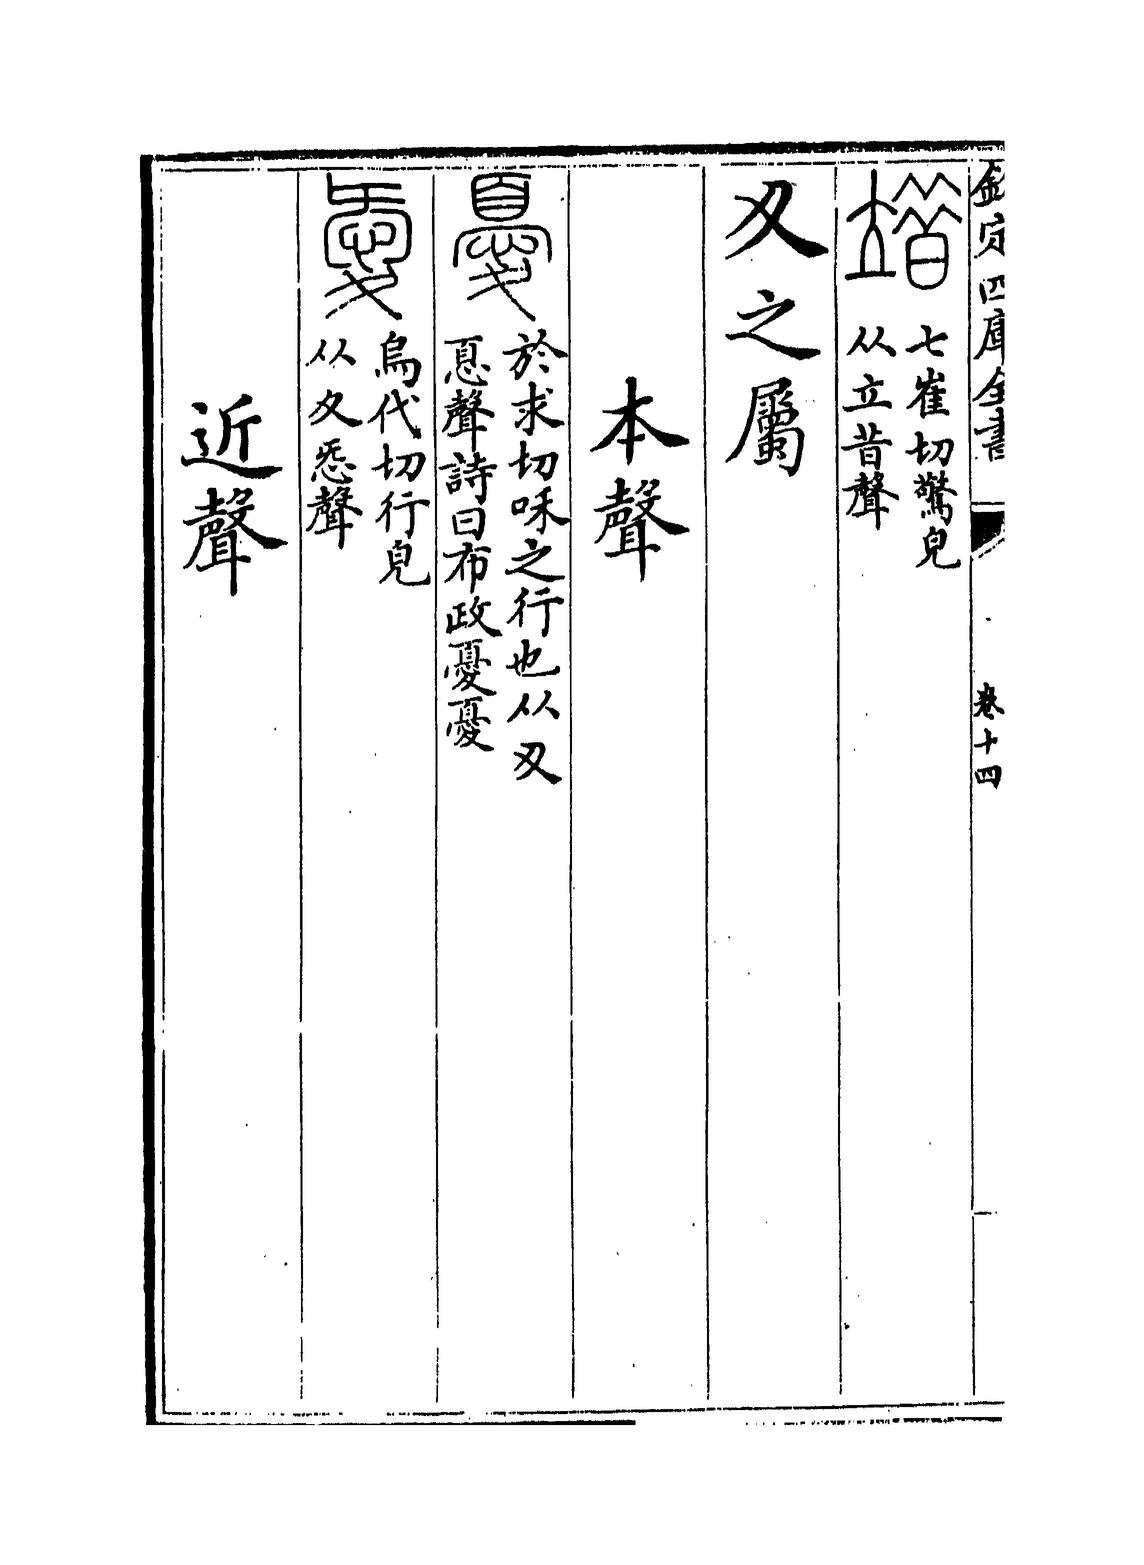 欽定四庫全書 卷十四
䇎
七崔切驚皃
从立昔聲
夊之屬
本聲
憂
於求切咊之行也从夊
㥑聲詩曰布政憂憂
愛
烏代切行皃
从夊㤅聲
近聲